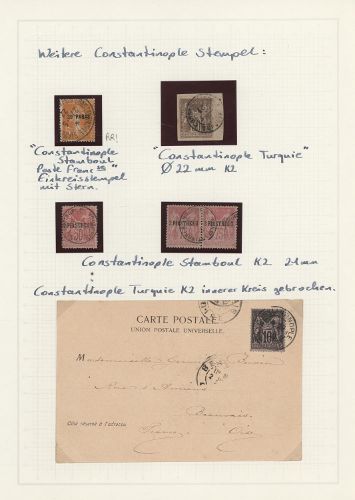 Weitere Constantinople Stempel:
RR!
"Constantinople
Stamboul
Poste Franc se
Einkreisstempel
mit Stern.
"Constantinople Turquie"
Ø 22 mm K2
2 PIASTRES
2 PIASTRES
Constantinople Stamboul K2 21 mm
Constantinople Turquie K2 innerer Kreis gebrochen.
CARTE POSTALE
UNION POSTALE UNIVERSELLE.
Mademoiselle
Beauvais
Oise
Côté réservé à l'adresse